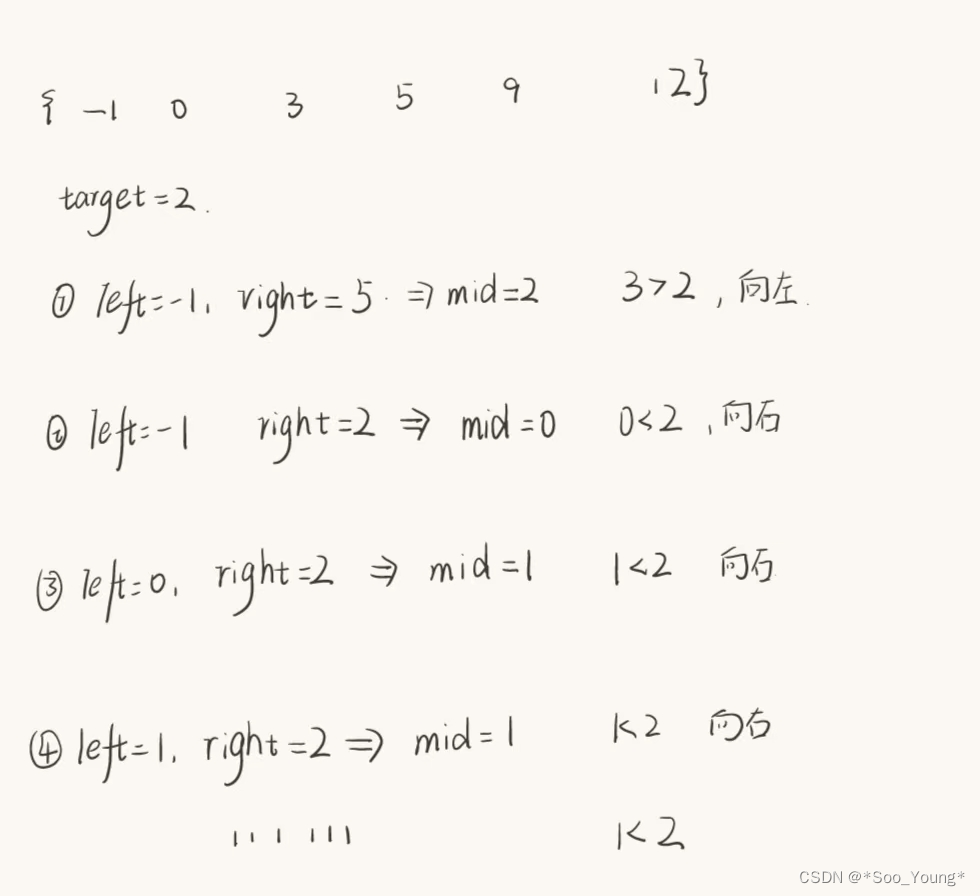 { -1 0 3 5 9 12}
target=2.
① left=-1, right=5. ⇒ mid=2 3>2,向左.
② left=-1 right=2 ⇒ mid=0 0<2,向右
③ left=0, right=2 ⇒ mid=1 1<2 向右
④ left=1, right=2 ⇒ mid=1 1<2 向右
1<2
CSDN @*Soo_Young*